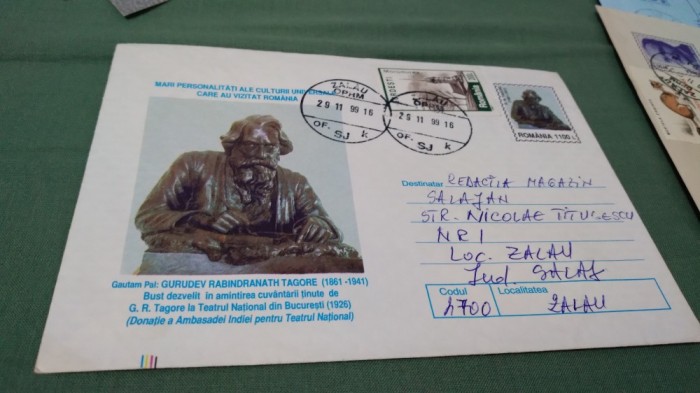 MARI PERSONALITĂȚI ALE CULTURII UNIVERSALE
CARE AU VIZITAT ROMÂNIA
Gautam Pal: GURUDEV RABINDRANATH TAGORE (1861 -1941)
Bust dezvelit în amintirea cuvântării ținute de
G. R. Tagore la Teatrul Național din București (1926)
(Donație a Ambasadei Indiei pentru Teatrul Național)
ZALAU
OPHM
29 11 99 16
OF. SJ k
ZALAU
OPHM
29 11 99 16
OF. SJ k
Romania
ROMÂNIA 1100 L
Destinatar REDACTIA MAGAZIN
SALAJAN
STR. NICOLAE TITULESCU
NR 1
Loc. ZALAU
Jud. SALAJ
Codul
4700
Localitatea
ZALAU